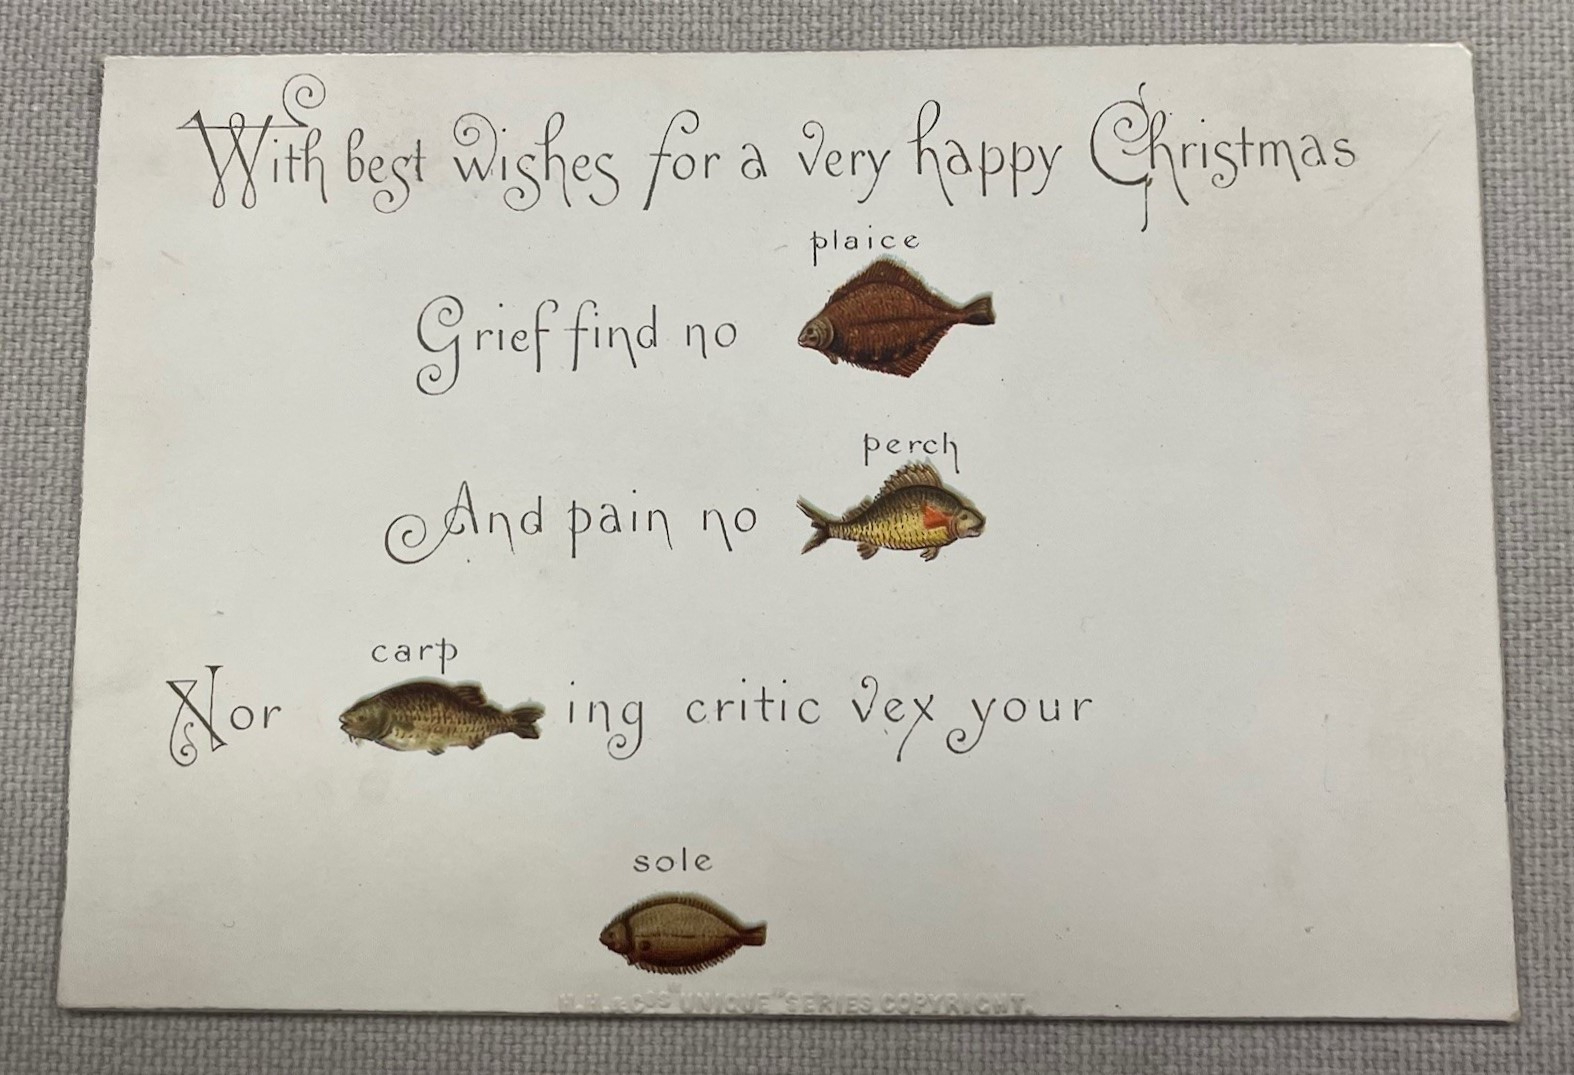 With best wishes for a very happy Christmas
plaice
Grief find no
perch
And pain no
carp
Nor ing critic vex your
sole
H.H. & Co's "UNIQUE" SERIES COPYRIGHT.